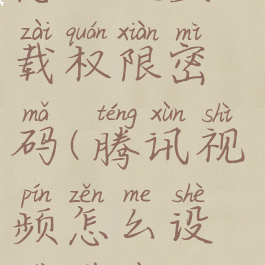 zài quán xiàn mì
载权限密
mǎ téng xùn shì
码(腾讯视
pín zěn me shè
频怎么设